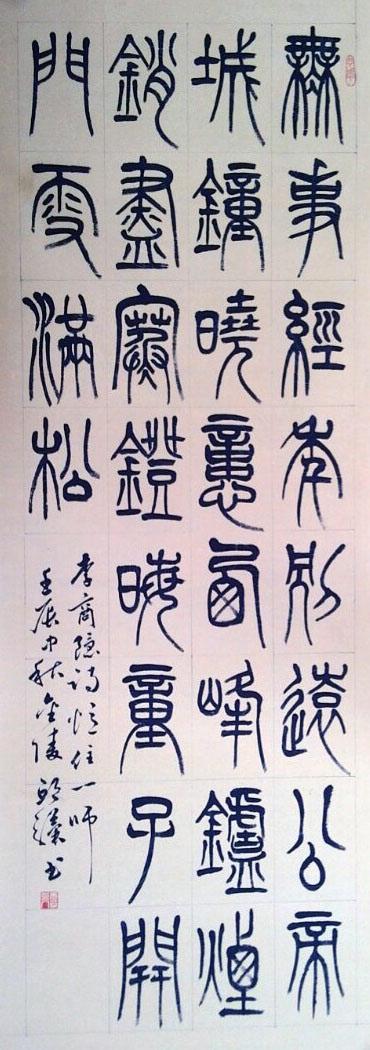 無事經年別遠公帝
城鐘曉憶西峰鑪煙
銷盡寒鐙晦童子開
門雪滿松
李商隐诗忆住一師
壬辰中秋金陵书